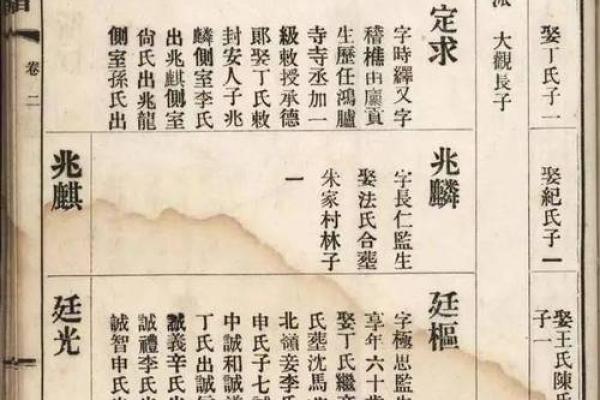 娶丁氏子一
大觀長子
定求
字時繹又字
稽樵由廩貢
生歷任鴻臚
寺寺丞加一
級敕授承德
郎娶丁氏敕
封安人子兆
麟側室李氏
出兆麒側室
尙氏出兆龍
側室孫氏出
卷二
娶紀氏子一
兆麟
字長仁監生
娶法氏合葬
朱家村林子
一
兆麒
娶王氏陳氏
子一
廷樞
字極思監生
享年六十
娶丁氏繼
氏葬沈馬
北嶺妾李氏
申氏子七誠
中誠和誠
丁氏出誠
誠義辛氏出
誠禮李氏出
誠智申氏出
廷光